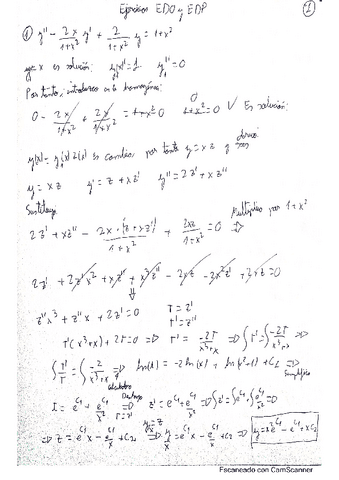 Ejercicios EDO y EDP
1
① y'' - 2x/(1+x²) y' + 2/(1+x²) y = 1+x²
y=x es solución: y'=1 y''=0
Por tanto, introducimos en la homogénea:
0 - 2x/(1+x²) + 2x/(1+x²) = 0 ✓ Es solución:
es cambio, por tanto y = xz y
y = xz y' = z + xz' y'' = 2z' + xz''
2z' + xz'' - 2x·(z+xz')/(1+x²) + 2xz/(1+x²) = 0 ⇒ Multiplico por 1+x²
2z' + 2z'x² + xz'' + x³z'' - 2xz - 2x²z' + 2xz = 0
⇓
z''x³ + z''x + 2z' = 0 T = z'
T' = z''
T'(x³+x) + 2T = 0 ⇒ T' = -2T/(x³+x) ⇒
∫T'/T = ∫-2/(x³+x) ⇒ ln(t) = -2 ln(x) + ln(x²+1) + C₁ ⇒
T = e^C₁ + e^C₁/x² z' = e^C₁ + e^C₁/x²
⇒ z = e^C₁x - e^C₁/x + C₂ ⇒ y/x = e^C₁x - e^C₁/x + C₂ ⇒ y = x²e^C₁ - e^C₁ + xC₂
Escaneado con CamScanner